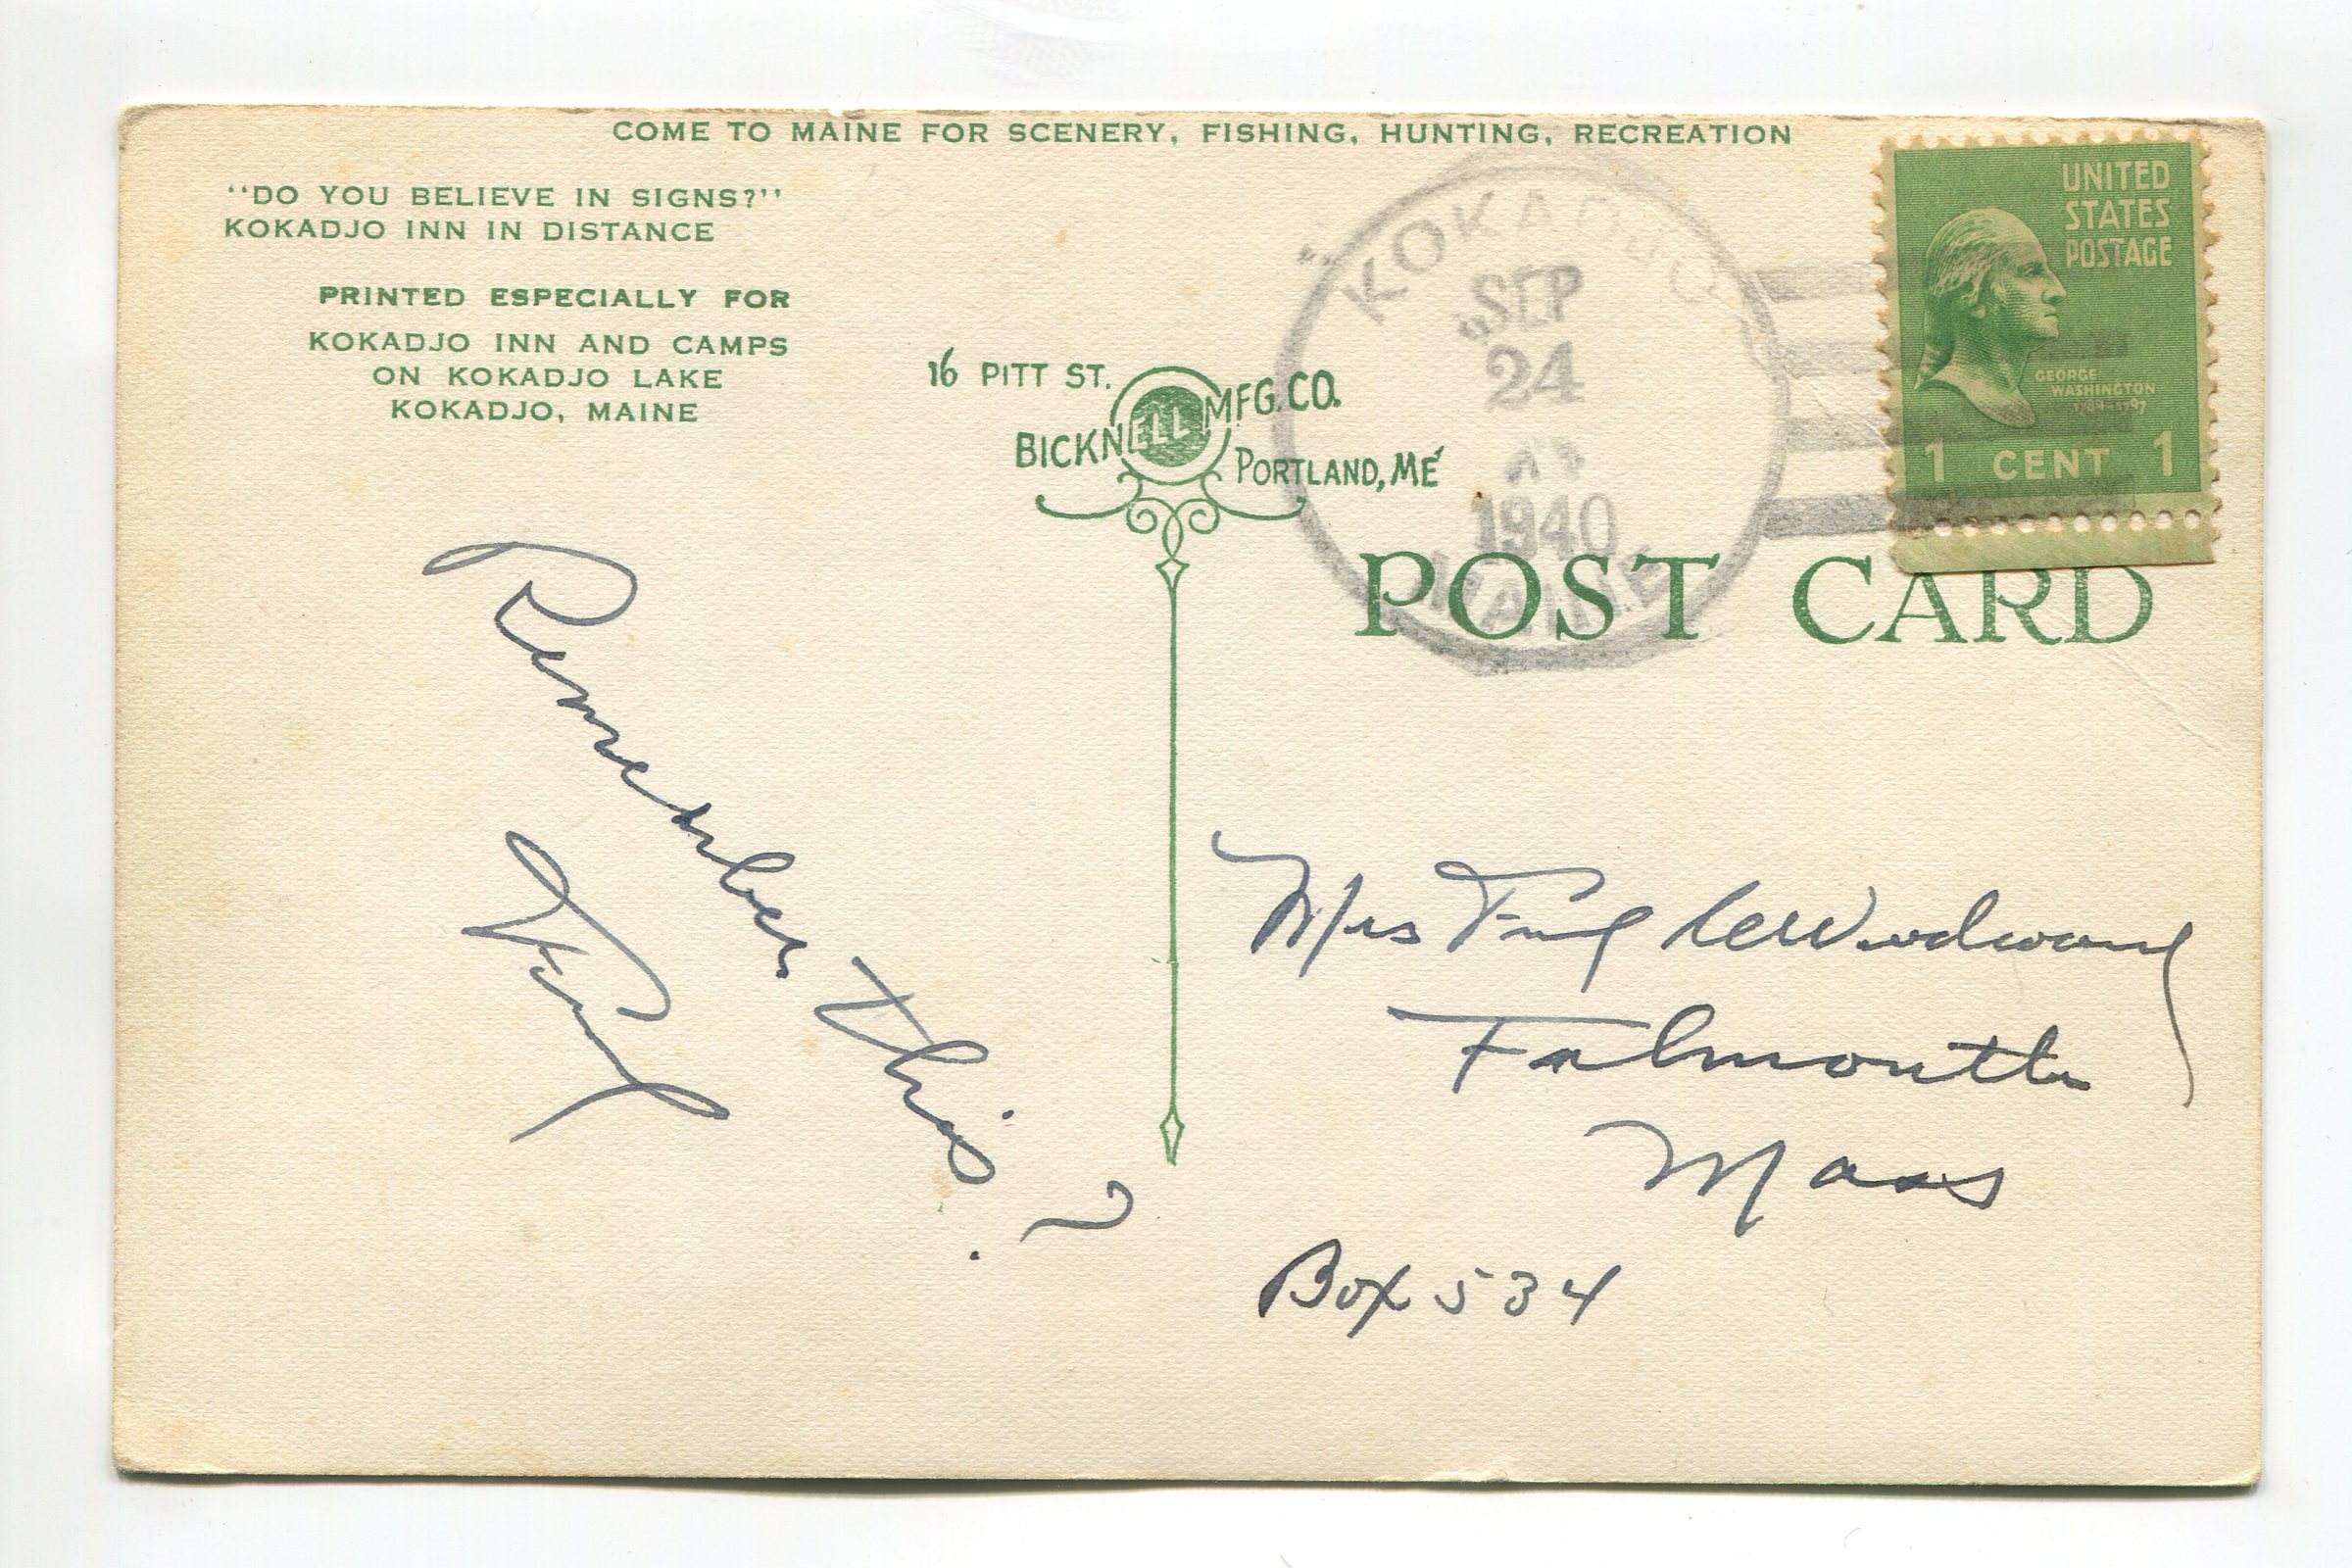 COME TO MAINE FOR SCENERY, FISHING, HUNTING, RECREATION
"DO YOU BELIEVE IN SIGNS?"
KOKADJO INN IN DISTANCE
PRINTED ESPECIALLY FOR
KOKADJO INN AND CAMPS
ON KOKADJO LAKE
KOKADJO, MAINE
16 PITT ST.
BICKNELL MFG. CO.
PORTLAND, ME
KOKADJO
SEP
24
1940
MAINE
UNITED
STATES
POSTAGE
GEORGE
WASHINGTON
1789-1797
1 CENT 1
POST CARD
Remember this?
Mrs Woodward
Falmouth
Mass
Box 534